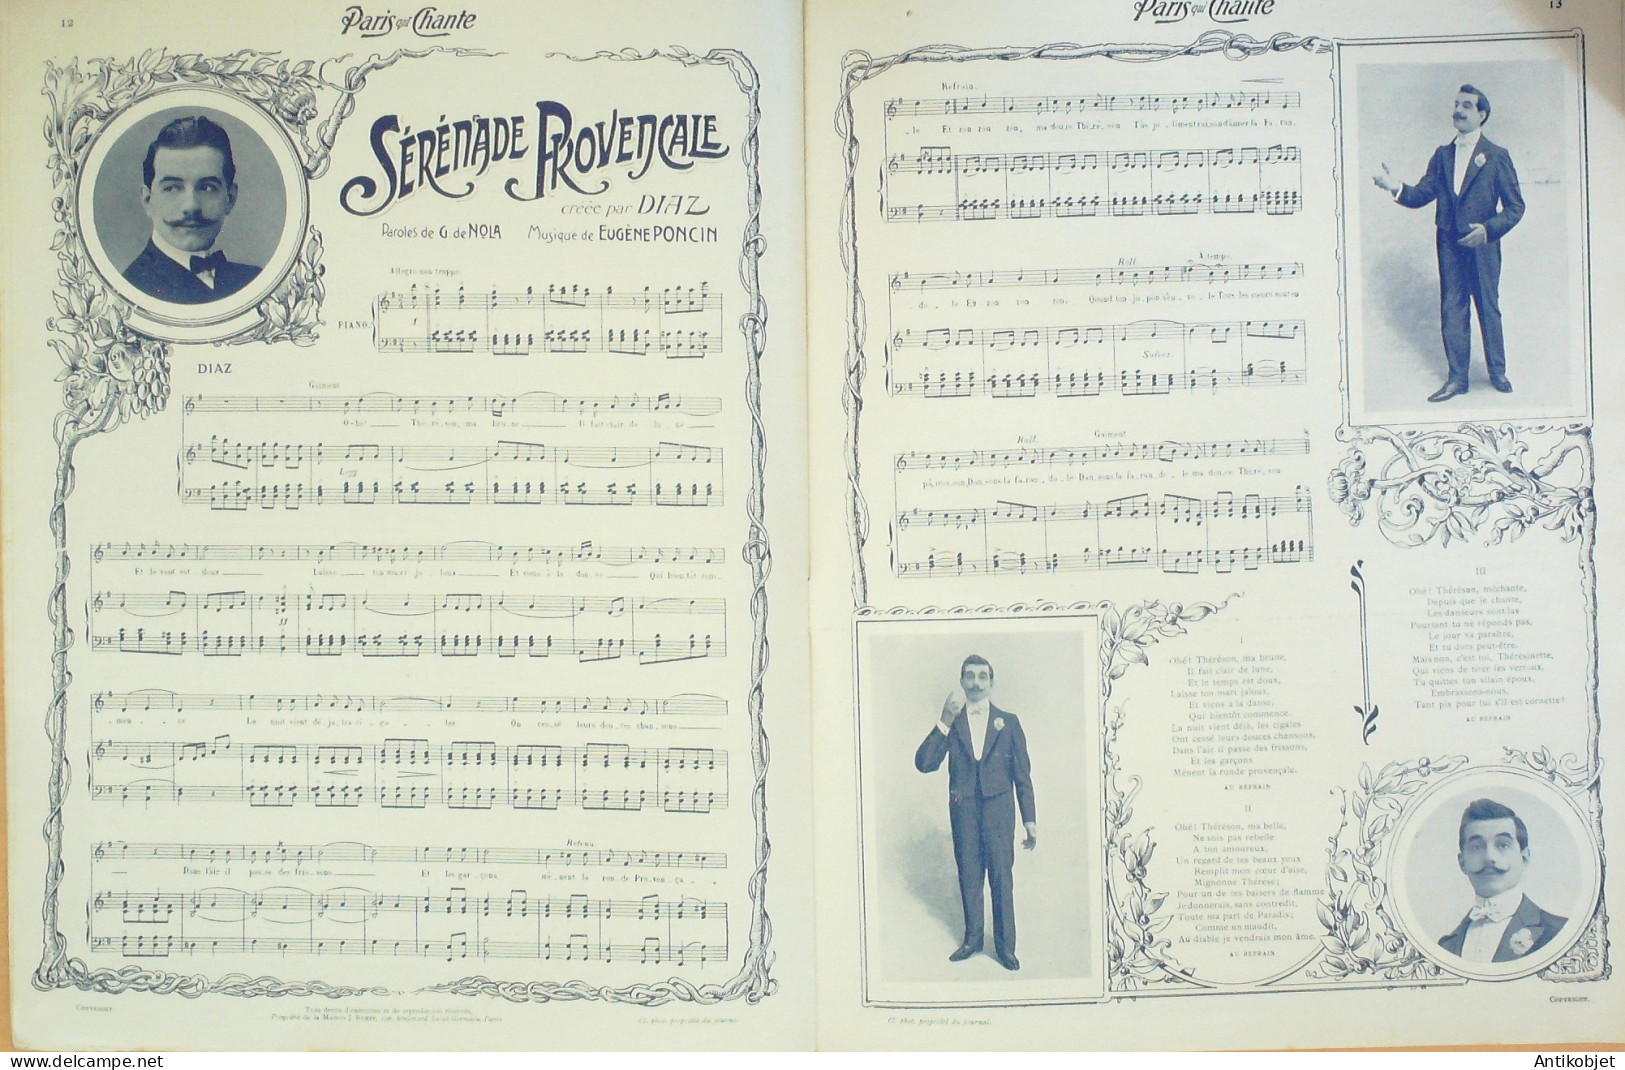 12
Paris qui Chante
SÉRÉNADE PROVENCALE
créée par DIAZ
Paroles de G. de NOLA Musique de EUGÈNE PONCIN
Allegro non troppo.
PIANO.
DIAZ
Gaiment
O-hé! Thé.ré.son, ma bru.ne Il fait clair de lu.ne
Legg
Et le vent est doux Laisse ton mari ja.loux Et viens à la dan.se Qui bien.tôt com.
ff
men.ce La nuit vient dé.jà, les ci.ga.les On ces.sé leurs dou.ces chan.sons
Retenu
Dans l'air il pas.se des fris.sons Et les gar.çons mè.nent la ron.de Pro.ven.ça.
COPYRIGHT
Tous droits d'exécution et de reproduction réservés.
Cl. phot. propriété du journal.
Paris qui Chante
13
Refrain.
le Et zon zon zon, ma dou.ce Thé.ré.son
Rall. A tempo.
do.le Et zon zon zon, Quand ton ju.pon s'en.vo.le Tous les cœurs
Suivez
Rall. Gaiment
Dan.sons la fa.ran.do.le Dan.sons la fa.ran.do.le ma dou.ce Thé.ré.son
I
Ohé! Théréson, ma brune,
Il fait clair de lune,
Et le temps est doux,
Laisse ton mari jaloux,
Et viens à la danse,
Qui bientôt commence.
La nuit vient déjà, les cigales
Ont cessé leurs douces chansons,
Dans l'air il passe des frissons,
Et les garçons
Mènent la ronde provençale.
AU REFRAIN
II
Ohé! Théréson, ma belle,
Ne sois pas rebelle
A ton amoureux,
Un regard de tes beaux yeux
Remplit mon cœur d'aise,
Mignonne Thérèse;
Pour un de tes baisers de flamme
Je donnerais, sans contredit,
Toute ma part de Paradis;
Comme un maudit,
Au diable je vendrais mon âme.
AU REFRAIN
III
Ohé! Théréson, méchante,
Depuis que je chante,
Les danseurs sont las
Pourtant tu ne réponds pas,
Le jour va paraître,
Et tu dors peut-être.
Mais non, c'est toi, Thérésinette,
Qui viens de tirer les verrous,
Tu quittes ton vilain époux,
Embrassons-nous,
Tant pis pour lui s'il est cornette!
AU REFRAIN
Cl. phot. propriété du journal.
COPYRIGHT.
www.delcampe.net
Antikobjet